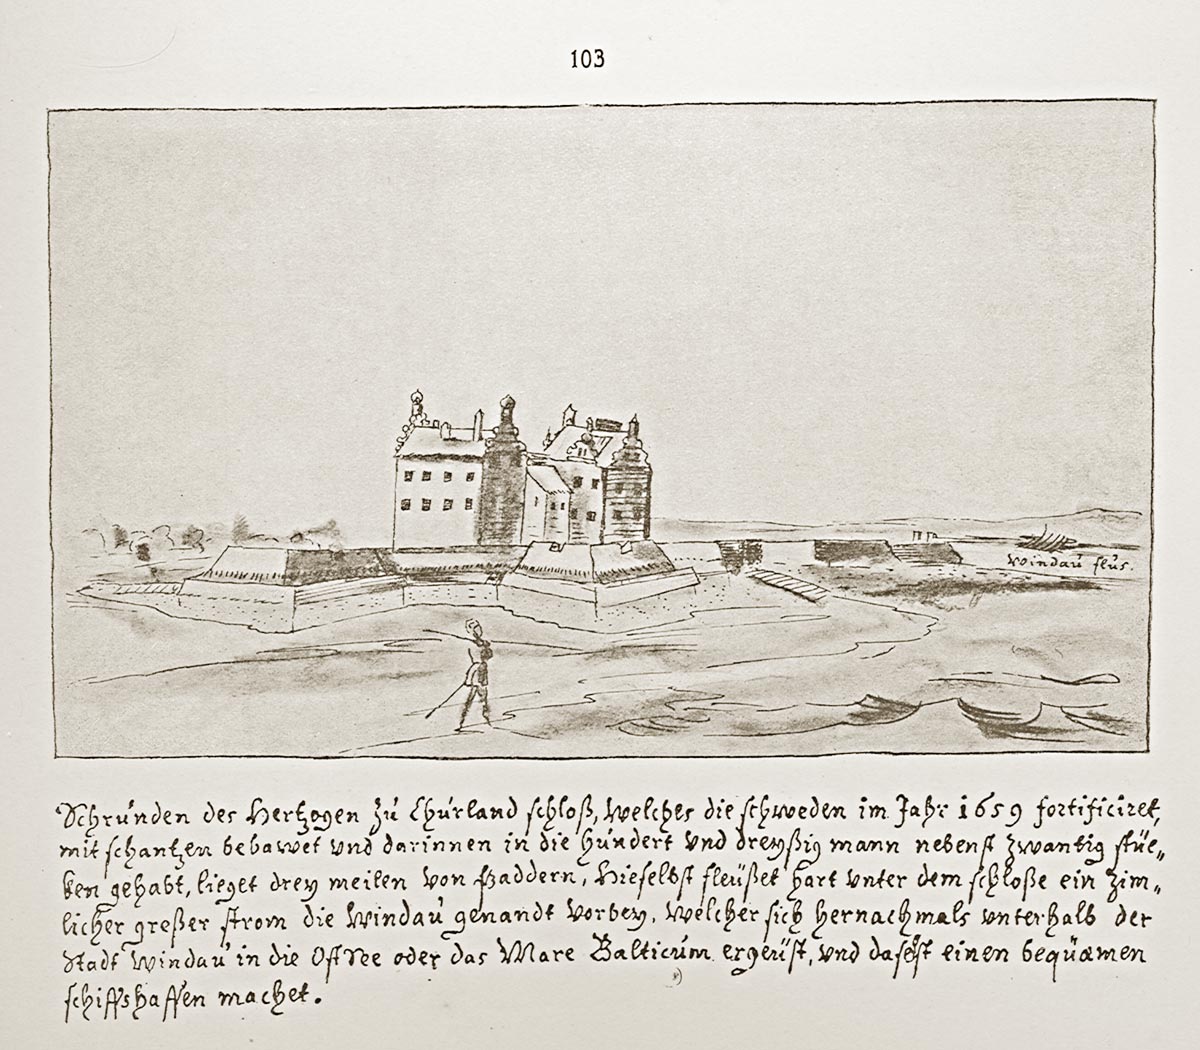 103
Windau flus.
Schrunden des Hertzogen zu Churland schloß, welches die schweden im Jahr 1659 fortificiret,
mit schantzen bebawet vnd darinnen in die hundert vnd dreyßig mann nebenst zwantig stüc„
ken gehabt, lieget drey meilen von Fraddern, Hieselbst fleüßet hart vnter dem schloße ein zim„
licher großer strom die Windau genandt vorbey, welcher sich hernachmals vnterhalb der
Stadt Windau in die OstSee oder das Mare Balticum ergeüst, vnd daselbst einen bequæmen
schiffshaffen machet.